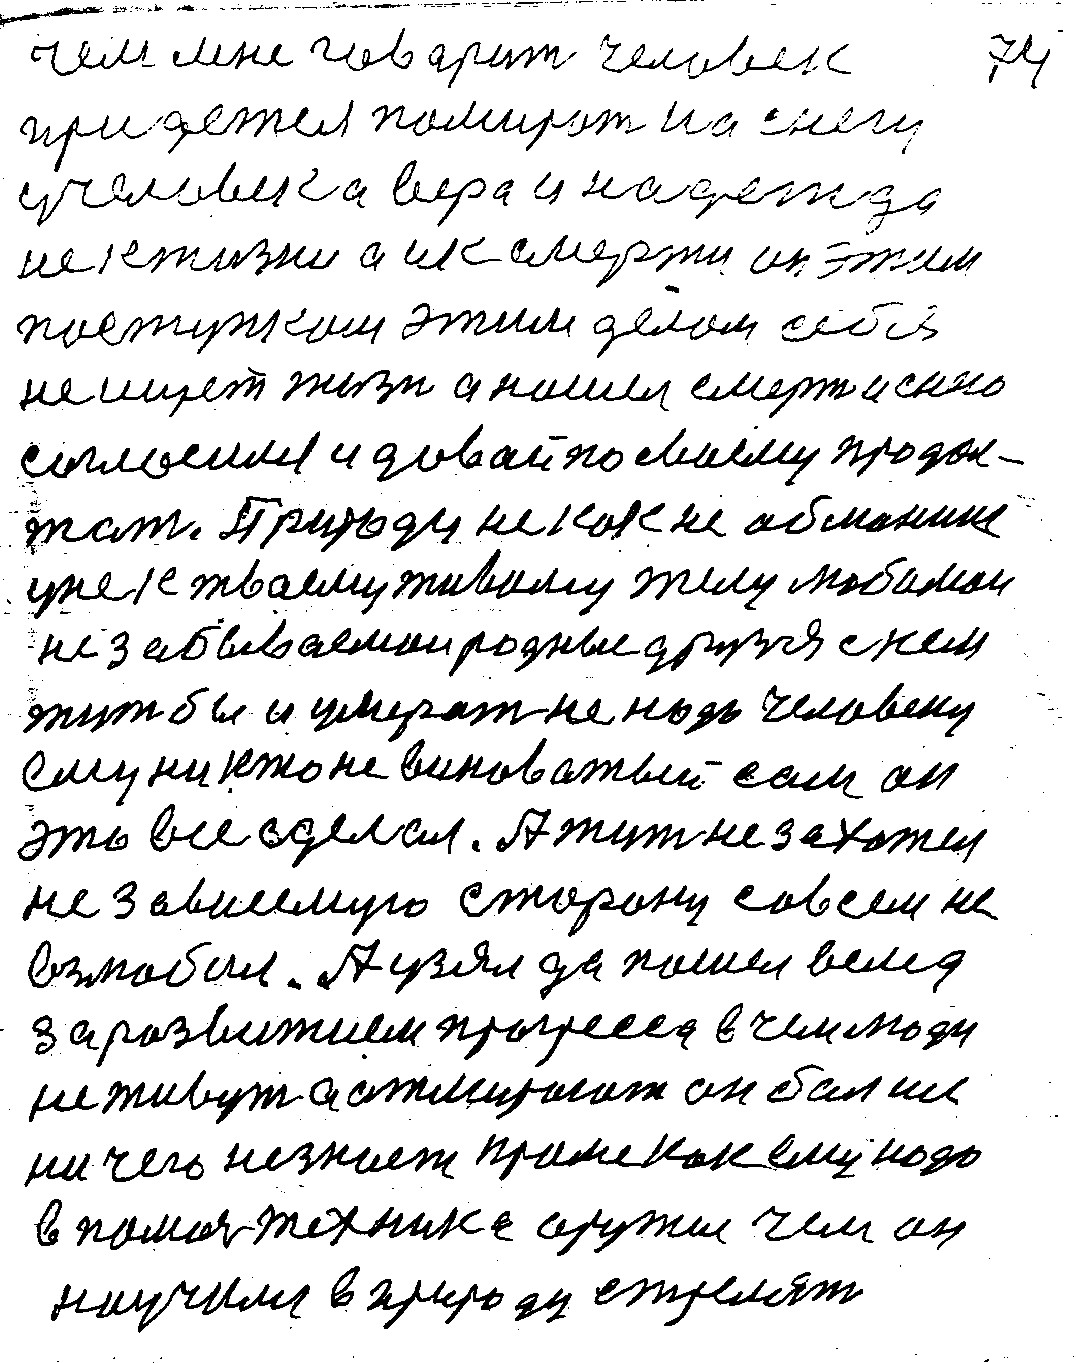 чем мне говарит человек 74
придетея помират на снегу
учеловека вера и надежда
не к жизни а и к смерти он этим
поступком этим делом себя
не ищет жизн а нашел смерт и с него
согласился и давай по своему продол-
жат. Природу не как не обманиш
уже к твоему живому телу любимои
не забываемои родные друзя с кем
жит бы и умерат не надо человеку
ему ни кто не виноватый сам он
это все сделал. А тут не захотел
не зависемую сторону совсем не
взлюбил. А узял да пошел велед
за развитием прогресса в чем люди
не живут а отмирают он болше
ни чего незнает проме как ему надо
в помоч техника оружие чем он
научился в природу стрелят